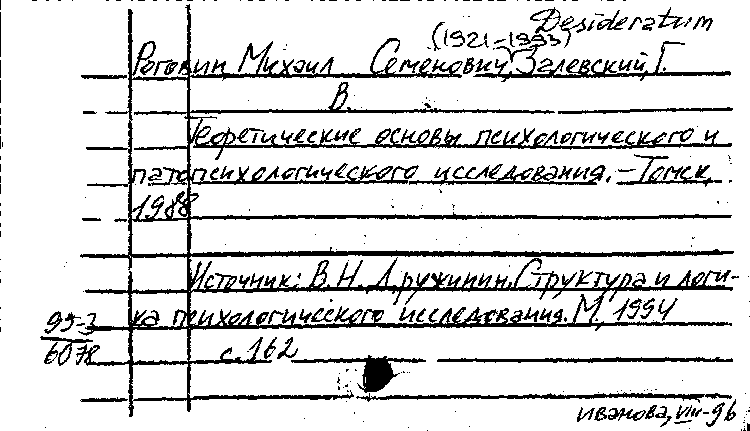 Desideratum
(1921-1993)
Роговин, Михаил Семенович, Залевский, Г.
В.
Теоретические основы психологического и
патопсихологического исследования. – Томск,
1988
Источник: В.Н. Дружинин. Структура и логи-
ка психологического исследования. М, 1994
с. 162
95-3
6078
Иванова, VIII-96